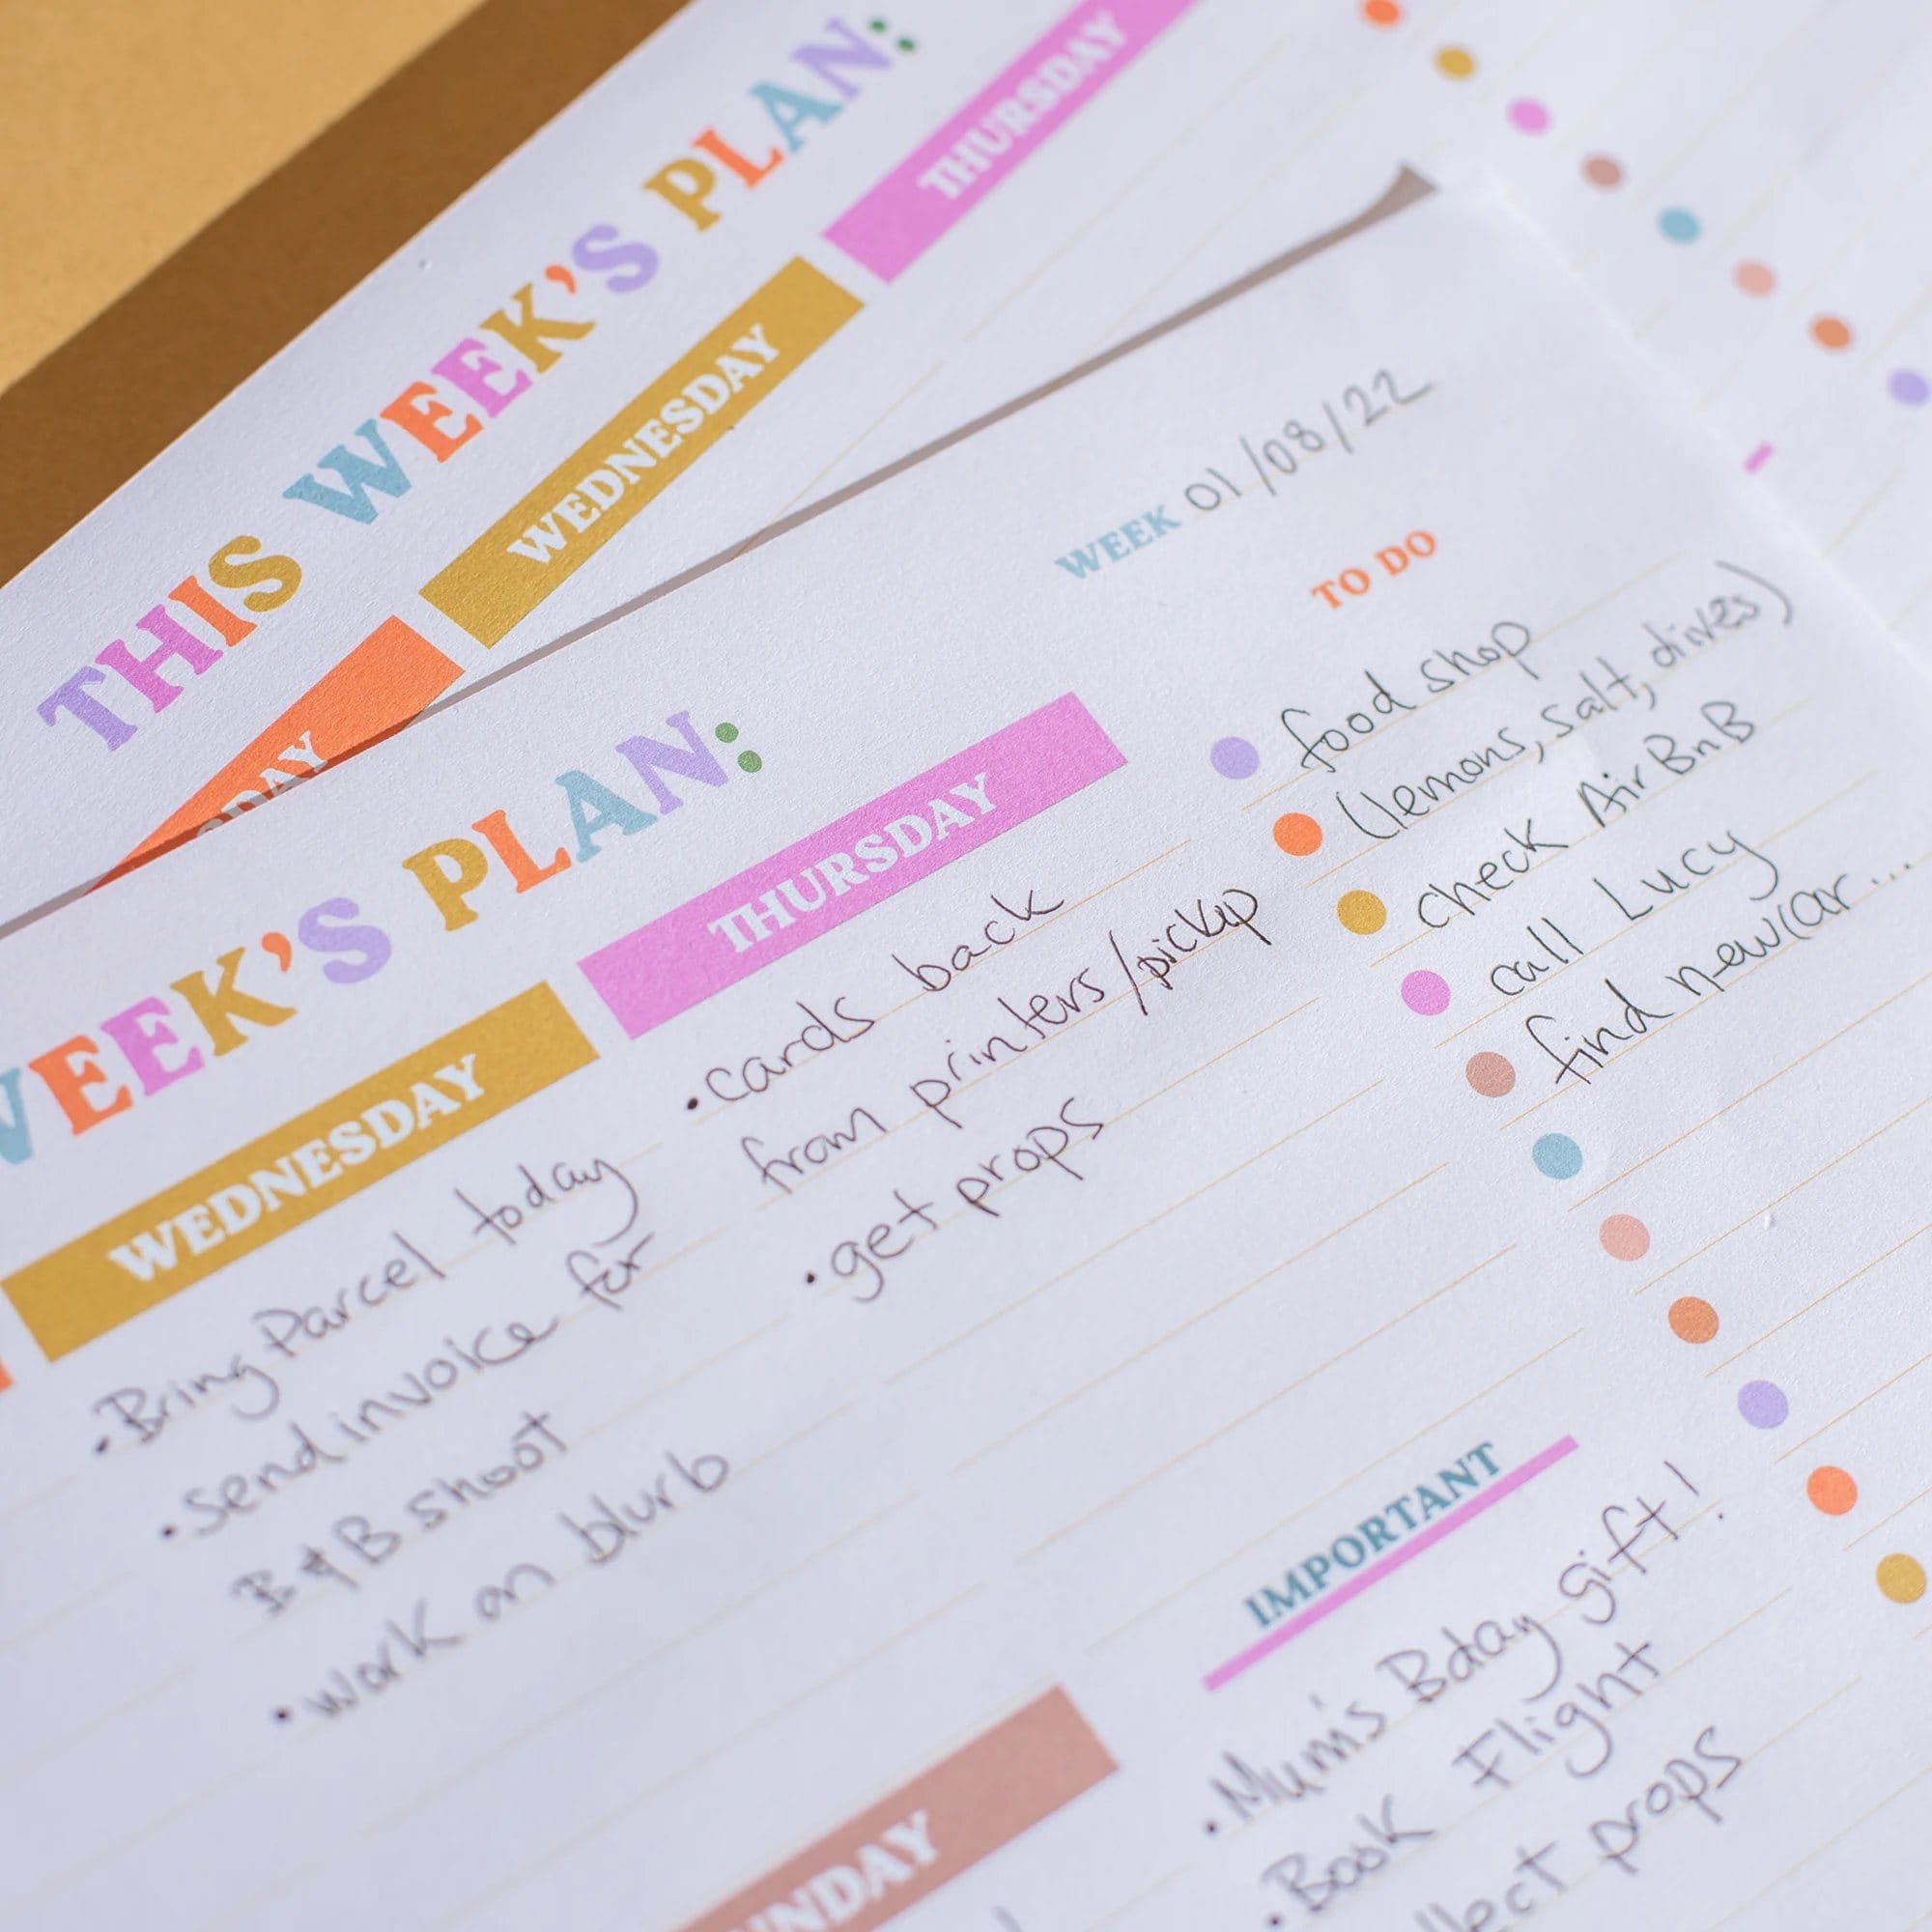 THIS WEEK'S PLAN:
WEDNESDAY
THURSDAY
DAY
WEEK 01/08/22
WEEK'S PLAN:
WEDNESDAY
• Bring Parcel today
• send invoice for
B & B shoot
• work on blurb
THURSDAY
• cards back
from printers/pickup
• get props
TO DO
food shop
(lemons, salt, olives)
check AirBnB
call Lucy
find new car...
IMPORTANT
• Mum's Bday gift!
• Book Flight
llect props
NDAY